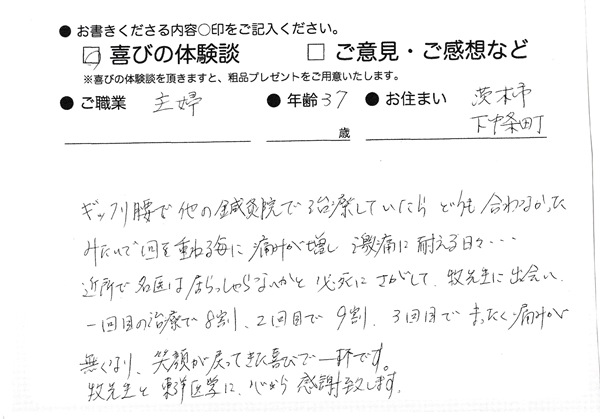 ● お書きくださる内容○印をご記入ください。
☑ 喜びの体験談 □ ご意見・ご感想など
※喜びの体験談を頂きますと、粗品プレゼントをご用意いたします。
● ご職業 主婦 ● 年齢 37 歳 ● お住まい 茨木市
下中条町
ギックリ腰で他の鍼灸院で治療していたら どうも合わなかった
みたいで回を重ねる毎に痛みが増し 激痛に耐える日々・・・
近所で名医はいらっしゃらないかと必死にさがして、牧先生に出会い、
一回目の治療で8割、2回目で9割、3回目でまったく痛みが
無くなり、笑顔が戻ってきた喜びで一杯です。
牧先生と東洋医学に、心から感謝致します。